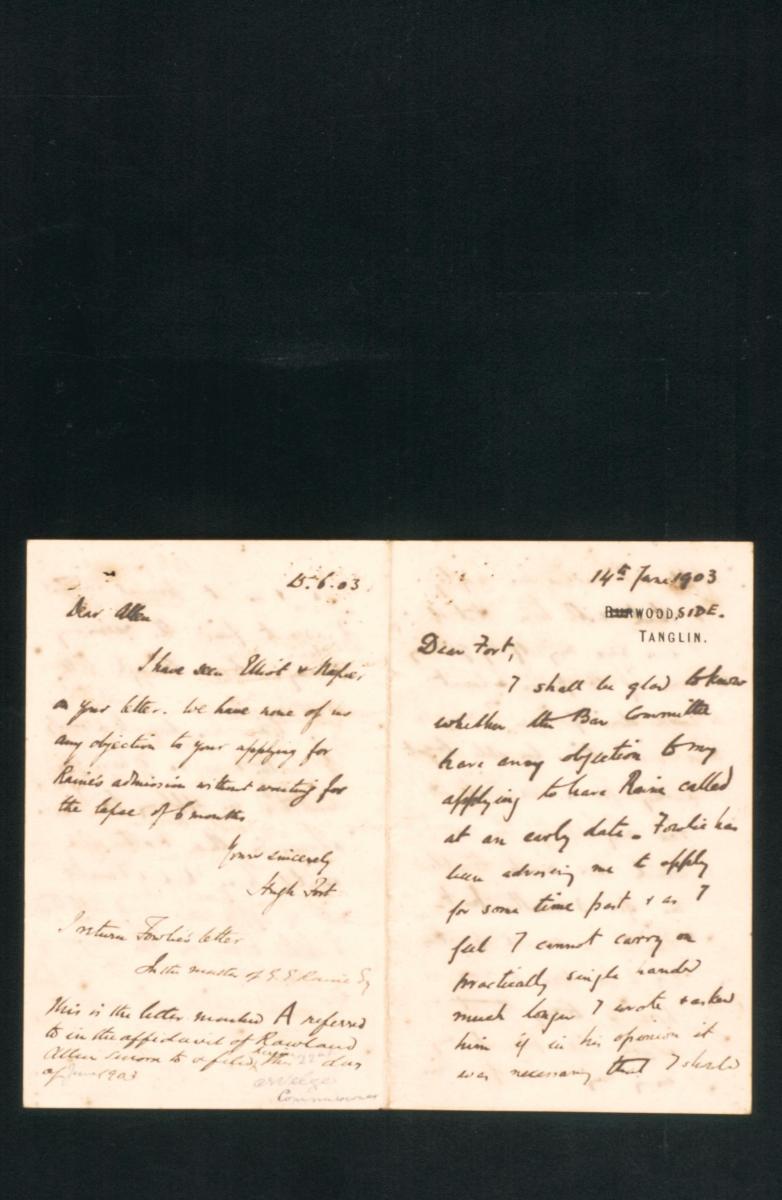 15.6.03
Dear Allen
I have seen Elliot & Napier
on your letter. We have none of us
any objection to your applying for
Raine's admission without waiting for
the lapse of 6 months
Yours sincerely
Hugh Fort
I return Fowlie's letter
In the matter of Raine Esq
This is the letter marked A referred
to in the affidavit of Rowland
Allen sworn to & filed this 22nd day
of June 1903
Commissioner
14th June 1903
BURWOOD, SIDE.
TANGLIN.
Dear Fort,
I shall be glad to know
whether the Bar Committee
have any objection to my
applying to have Raine called
at an early date. Fowlie has
been advising me to apply
for some time past & as I
feel I cannot carry on
practically single handed
much longer I wrote & asked
him if in his opinion it
was necessary that I should